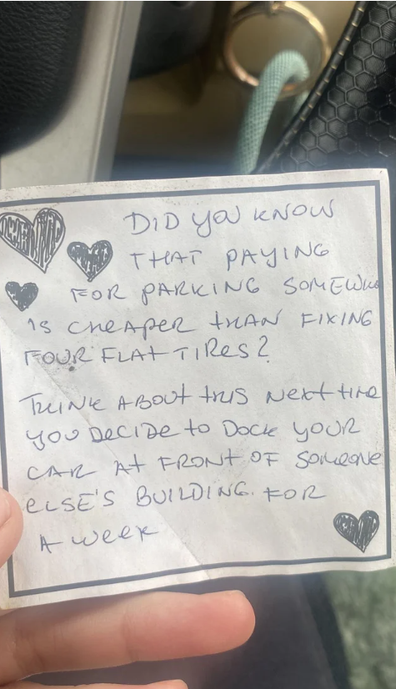 DID YOU KNOW
THAT PAYING
FOR PARKING
IS CHEAPER THAN FIXING
FOUR FLAT TIRES?
THINK ABOUT THIS NEXT TIME
YOU DECIDE TO DOCK YOUR
CAR AT FRONT OF SOMEONE
ELSE'S BUILDING. FOR
A WEEK